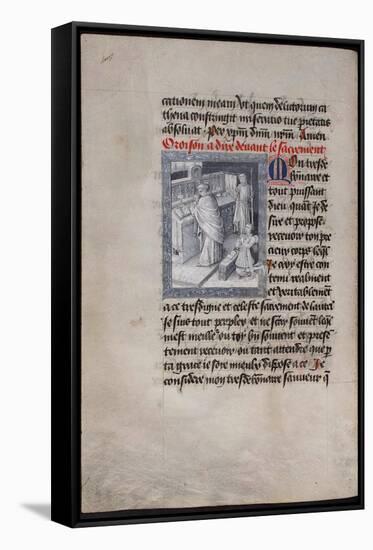 cationem meam Vt quem delictorum ca
thena constringit miseratio tue pietatis
absoluat. Per xpm dnm nrm. Amen
Oroison a dire deuant le sacrement
Mon tresde
bonnaire et
tout puissant
dieu quant Je de
sire et propose
receuoir ton pre
cieux corps
Je croy estre con
tenu realment
et veritablement
a ce tresdigne et celeste sacrement de lautel
Je suis tout perplex et ne scay souuent
mest meilleur ou toy souuent et prese
tement receuoir ou tant attendre que p
ta grace ie soie mieulx dispose a ce Je
considere mon tresdebonnaire sauueur q